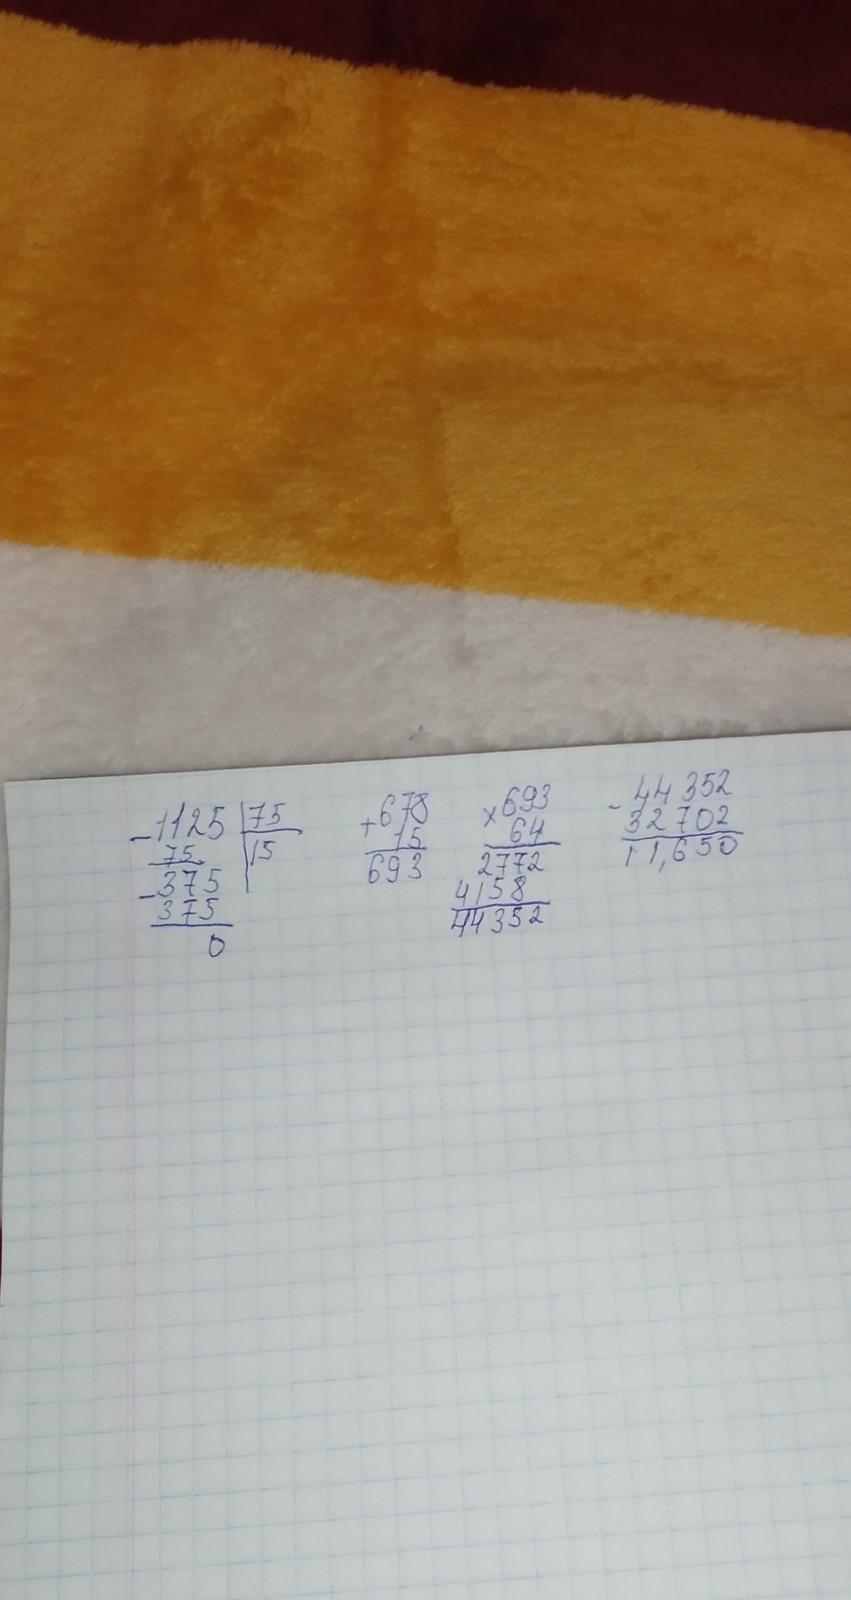 -1125 75
75 15
-375
375
0
+678
15
693
×693
64
2772
4158
44352
-44352
32702
11,650